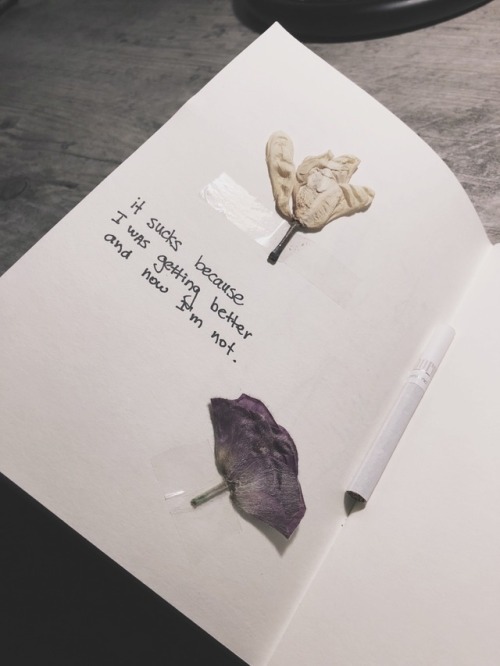 it sucks because
I was getting better
and now I'm not.